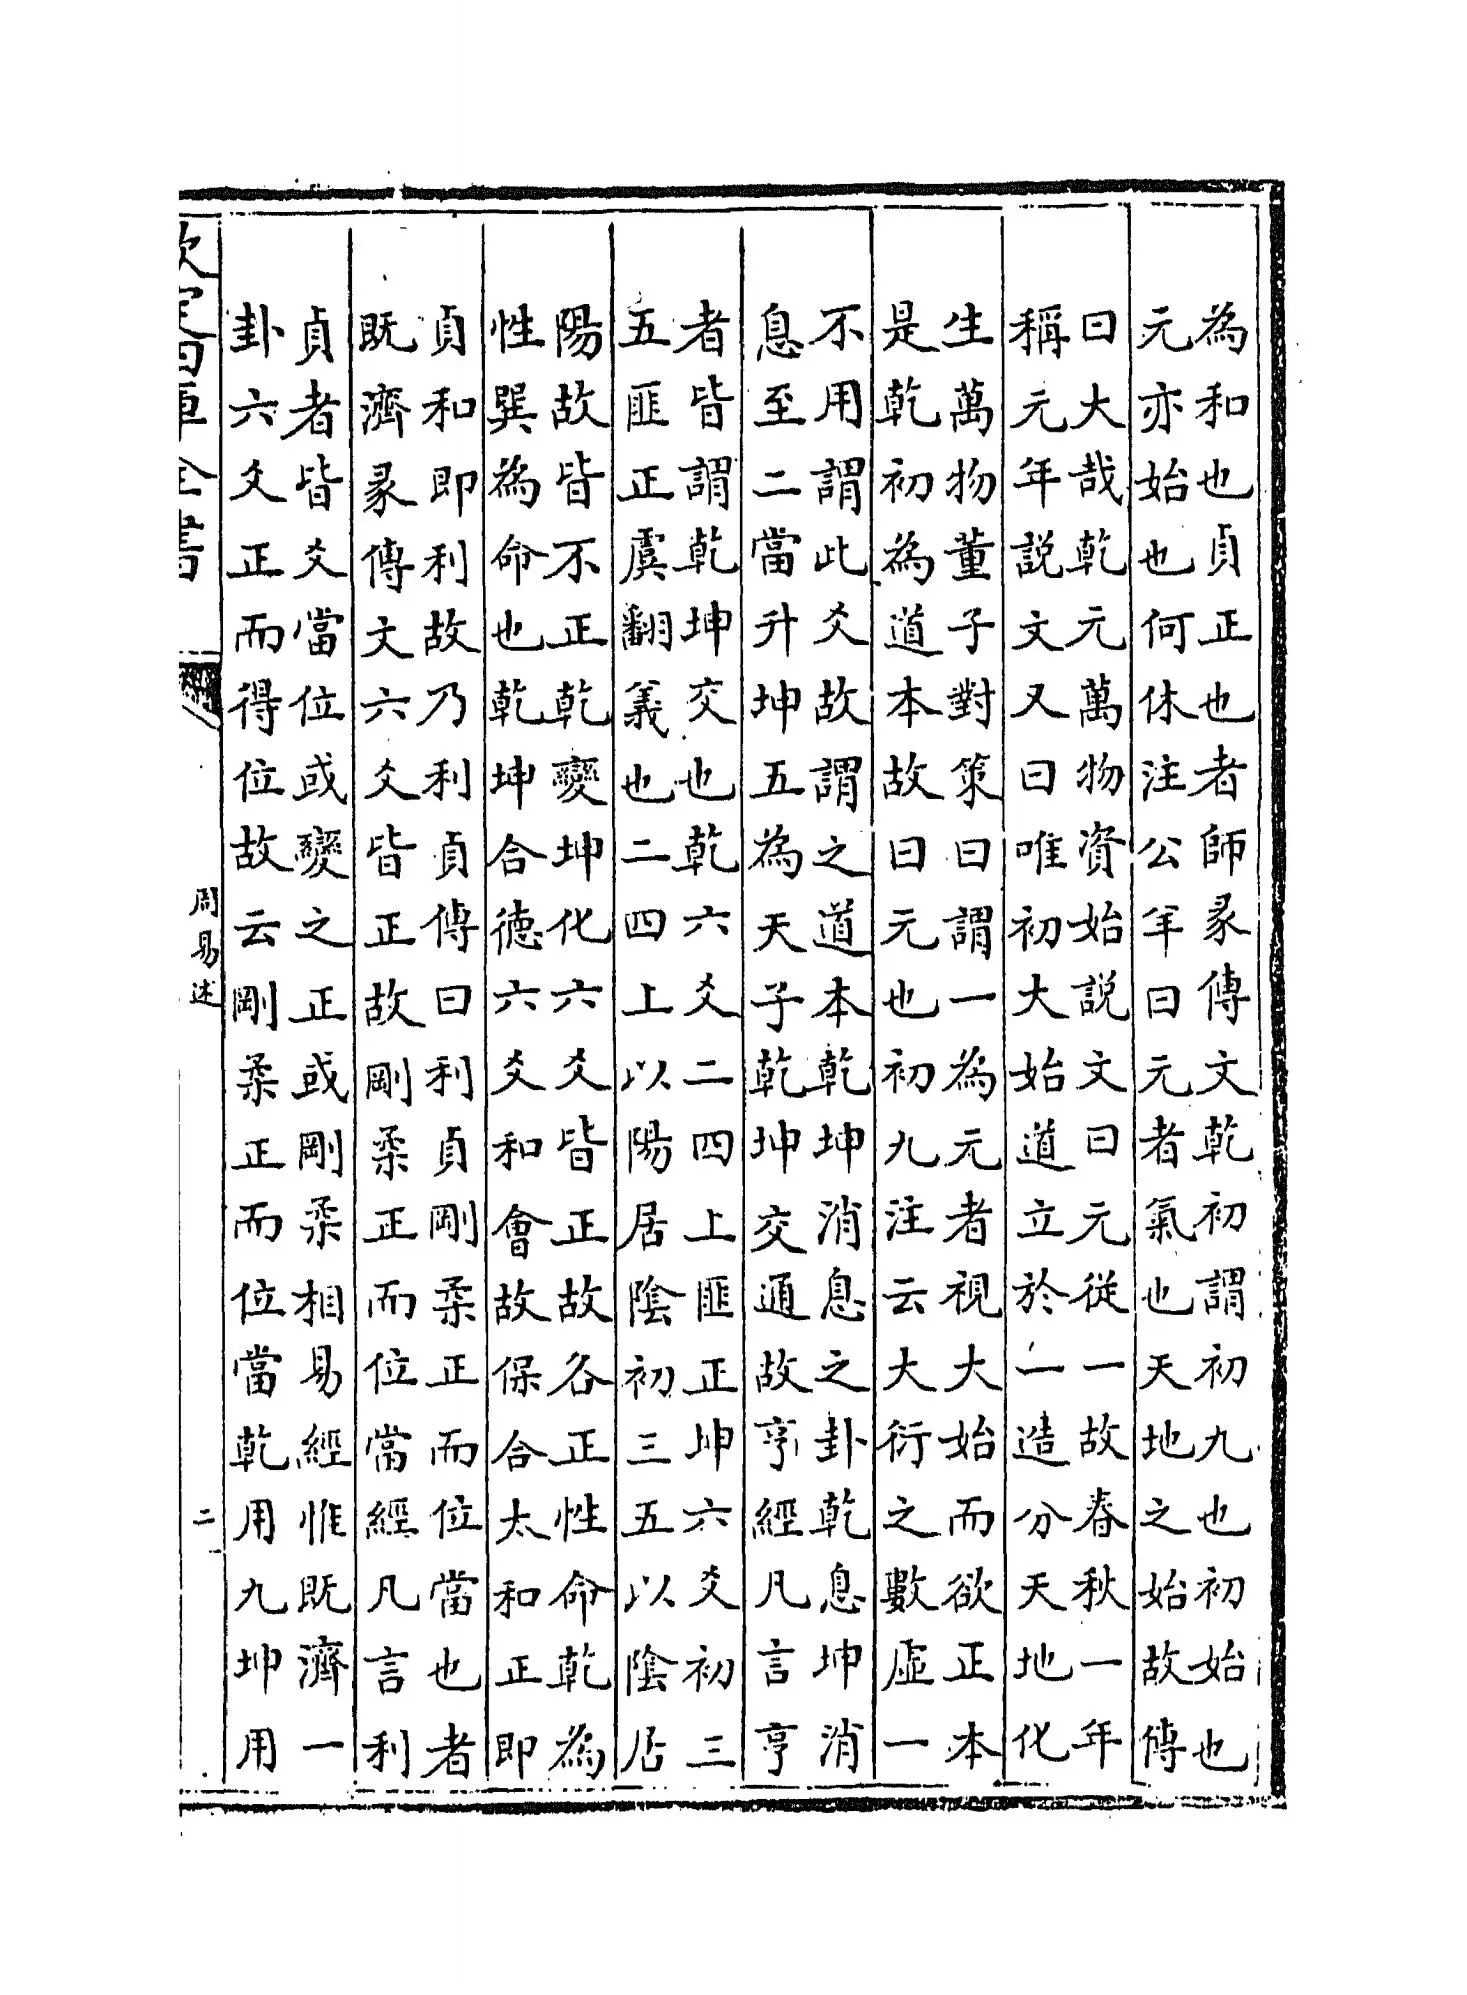 為和也貞正也者師彖傳文乾初謂初九也初始也
元亦始也何休注公羊曰元者氣也天地之始故傳
曰大哉乾元萬物資始說文曰元從一故春秋一年
稱元年說文又曰唯初大始道立於一造分天地化
生萬物董子對策曰謂一為元者視大始而欲正本
是乾初為道本故曰元也初九注云大衍之數虛一
不用謂此爻故謂之道本乾坤消息之卦乾息坤消
息至二當升坤五為天子乾坤交通故亨經凡言亨
者皆謂乾坤交也乾六爻二四上匪正坤六爻初三
五匪正虞翻義也二四上以陽居陰初三五以陰居
陽故皆不正乾變坤化六爻皆正故各正性命乾為
性巽為命也乾坤合德六爻和會故保合太和正即
貞和即利故乃利貞傳曰利貞剛柔正而位當也者
既濟彖傳文六爻皆正故剛柔正而位當經凡言利
貞者皆爻當位或變之正或剛柔相易經惟既濟一
卦六爻正而得位故云剛柔正而位當乾用九坤用
欽定四庫全書
周易述
二